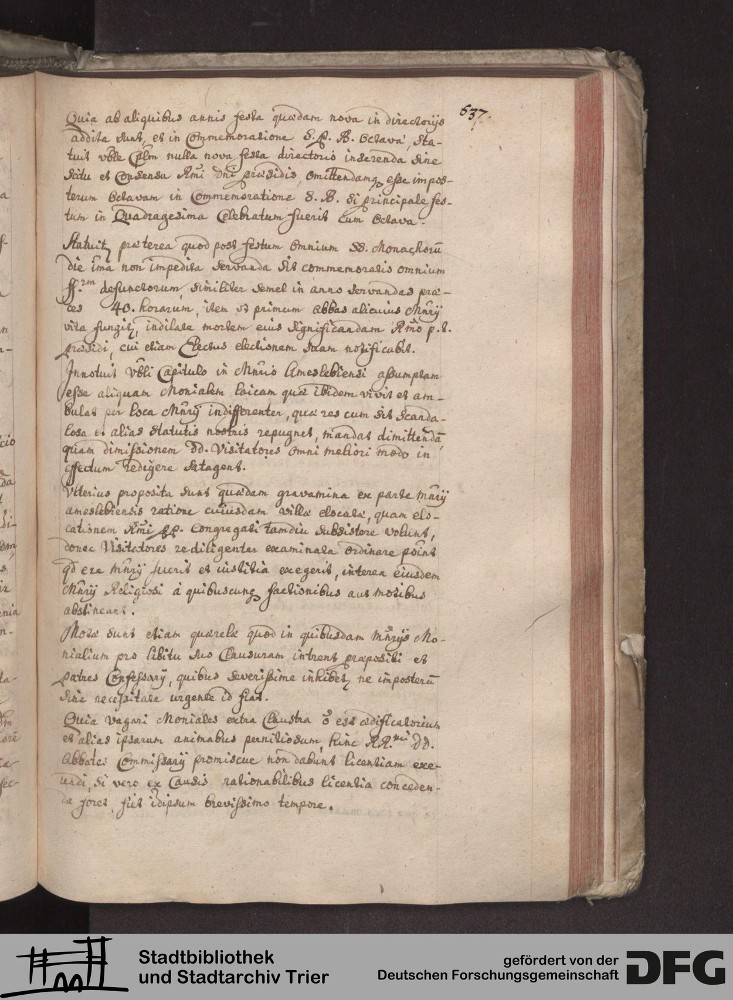 637.
Quia ab aliquibus annis festa quædam nova in directorijs
addita sunt, et in Commemoratione S. P. B. octava, sta-
tuit vble Cplm nulla nova festa directorio inserenda sine
scitu et Consensu Rmi Dni præsidis, omittendamq esse impos-
terum octavam in Commemoratione S. B. si principale fes-
tum in Quadragesima Celebratum fuerit cum octava.
Statuit præterea quod post festum omnium SS. Monachorū
die ima non impedita servanda sit commemoratio omnium
ff.rm defunctorum, similiter semel in anno servandas præ-
ces 40. horarum, item ut primum abbas alicuius Mnrij
vita fungit, indilate mortem eius significandam Rmo p. t.
præsidi, cui etiam Electus electionem suam notificabit.
Innotuit Vbli Capitulo in Mnrio Ameslebiensi assumptam
esse aliquam Monialem laicam quæ ibidem vivit et am-
bulat per loca Mnrij indifferenter, quæ res cum sit scanda-
losa et alias statutis nostris repugnet, mandat dimittendā,
quam dimissionem DD. Visitatores omni meliori modo in
effectum redigere satagent.
Ulterius proposita sunt quædam gravamina ex parte Mnrij
ameslebiensis ratione cuiusdam villæ elocatæ, quam elo-
cationem Rmi PP. Congregati tamdiu subsistere volunt,
donec Visitatores re diligenter examinata ordinare point
qd ex re mnrij fuerit et iustitia exegerit, interea eiusdem
Mnrij Religiosi à quibuscunq factionibus aut motibus
abstineant.
Motæ sunt etiam quærelæ quod in quibusdam Mnrijs Mo-
nialium pro libitu suo Clausuram intrent præpositi et
patres Confessarij, quibus severissime inhibet, ne imposterū
sine necessitate urgente id fiat.
Quia vagari Moniales extra Claustra ō est ædificatorium
et alias ipsarum animabus pernitiosum, hinc RR.mi DD.
Abbates Commissarij promiscue non dabunt licentiam exe-
undi, si vero ex Causis rationabilibus licentia conceden-
da foret, fiet idipsum brevissimo tempore.
Stadtbibliothek
und Stadtarchiv Trier
gefördert von der
Deutschen Forschungsgemeinschaft
DFG